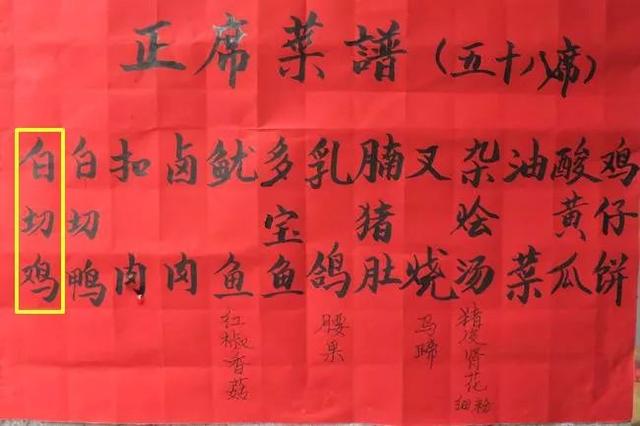 正席菜譜（五十八席）
白切鸡
白切鸭
扣肉
卤肉
鱿鱼
红椒香菇
多宝鱼
乳鸽
腰果
腩猪肚
叉烧
马蹄
杂烩汤
猪皮肾花
细粉
油菜
酸黄瓜
鸡仔饼